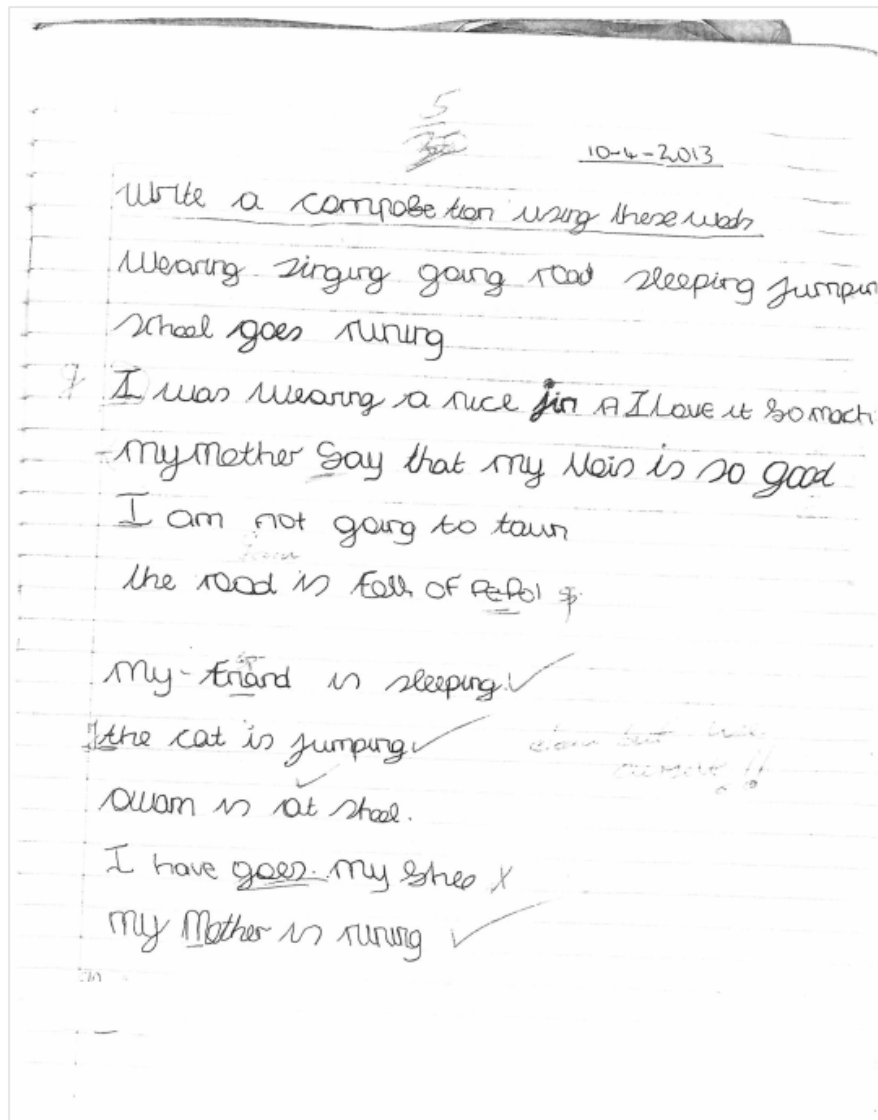 5
10-4-2013
Write a compobetion using these wods
Wearing singing going road sleeping jumpin
school goes runing
I was wearing a nice jin A I Love it so moch
My Mother Say that my Vois is so good
I am not going to taun
the road is foll of PePol
My friand is sleeping.
the cat is jumping
is at shool.
I have goes my Shee X
My Mother is runing